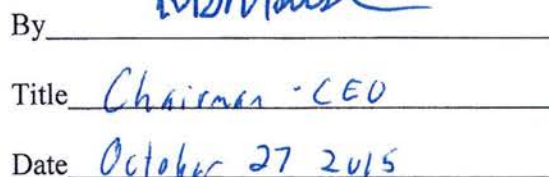 By
Title Chairman - CEO
Date October 27 2015